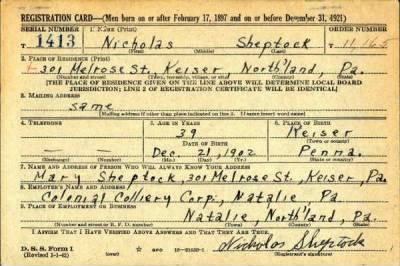 REGISTRATION CARD—(Men born on or after February 17, 1897 and on or before December 31, 1921)
SERIAL NUMBER 1. NAME (Print) ORDER NUMBER
T 1413 Nicholas Sheptock T 11,165
(First) (Middle) (Last)
2. PLACE OF RESIDENCE (Print)
301 Melrose St. Keiser North'land, Pa.
(Number and street) (Town, township, village, or city) (County) (State)
[THE PLACE OF RESIDENCE GIVEN ON THE LINE ABOVE WILL DETERMINE LOCAL BOARD
JURISDICTION; LINE 2 OF REGISTRATION CERTIFICATE WILL BE IDENTICAL]
3. MAILING ADDRESS
same
[Mailing address if other than place indicated on line 2. If same insert word same]
4. TELEPHONE 5. AGE IN YEARS 6. PLACE OF BIRTH
39 Keiser
DATE OF BIRTH (Town or county)
Dec. 21, 1902 Penna.
(Exchange) (Number) (Mo.) (Day) (Yr.) (State or country)
7. NAME AND ADDRESS OF PERSON WHO WILL ALWAYS KNOW YOUR ADDRESS
Mary Sheptock, 301 Melrose St., Keiser, Pa.
8. EMPLOYER'S NAME AND ADDRESS
Colonial Colliery Corp., Natalie, Pa.
9. PLACE OF EMPLOYMENT OR BUSINESS
Natalie, North'l'd, Pa.
(Number and street or R. F. D. number) (Town) (County) (State)
I AFFIRM THAT I HAVE VERIFIED ABOVE ANSWERS AND THAT THEY ARE TRUE.
D. S. S. Form 1
(Revised 3-1-42) Nicholas Sheptock
(Registrant's signature)